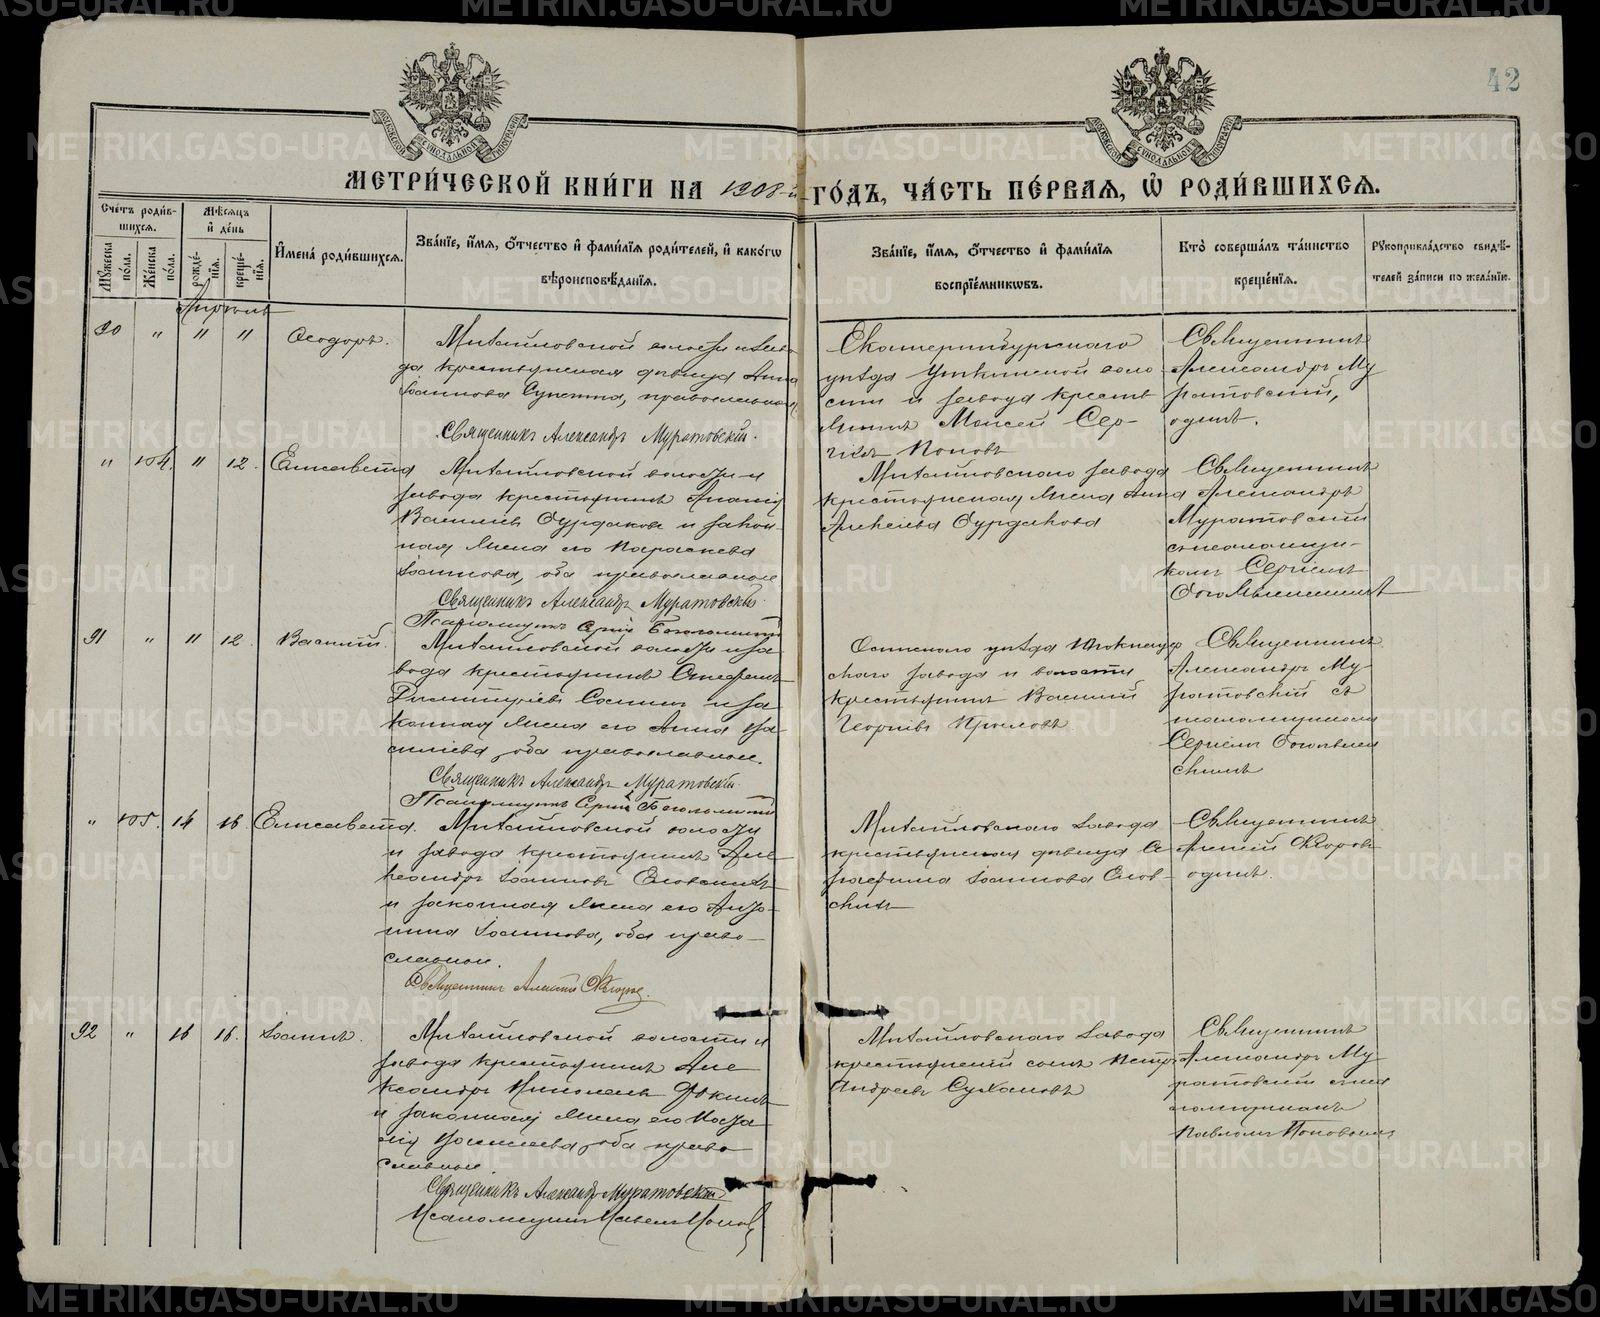 42
МЕТРИ́ЧЕСКОЙ КНИ́ГИ НА 1908-й ГО́ДЪ, ЧА́СТЬ ПЕ́РВАЯ, Ѡ РОДИ́ВШИХСЯ.
Сче́тъ роди́в-
шихся.
Мѣ́сяцъ
и де́нь
Мꙋ́жеска по́ла.
Же́нска по́ла.
рожде́-
нїя.
креще́-
нїя.
И҆мена̀ роди́вшихся.
Зва́нїе, и҆́мя, ѻ҆́тчество и҆ фами́лїя роди́телей, и҆ како́гѡ
вѣроисповѣ́данїя.
Зва́нїе, и҆́мя, ѻ҆́тчество и҆ фами́лїя
воспрїе́мниковъ.
Кто̀ соверша́лъ та́инство
креще́нїя.
Рꙋкоприкла́дство свидѣ́-
телей за́писи по жела́нїю.
Апрѣль
90 " 11 11 Ѳеодоръ.
Михайловской волости и заво
да крестьянская дѣвица Анна
Іоаннова, православная
Священникъ Александръ Муратовскій.
Екатеринбургскаго
уѣзда Уткинской воло
сти и завода кресть
янинъ Моисей Сер-
гіевъ Поповъ
Священникъ
Александръ Му
ратовскій,
одинъ.
" 104. 11 12. Елисавета
Михайловской волости и
завода крестьянинъ Ананій
Васильевъ Бурдаковъ и закон-
ная жена его Параскева
Іоаннова, оба православные
Священникъ Александръ Муратовскій
Псаломщикъ Сергій
Михайловскаго завода
крестьянская жена Анна
Алексѣева Бурдакова
Священникъ
Александръ
Муратовскій
съ псаломщи-
комъ Сергіемъ
91 " 11 12. Василій.
Михайловской волости и за-
вода крестьянинъ Стефанъ
Димитріевъ и за
конная жена его Анна Ва-
силіева, оба православные.
Священникъ Александръ Муратовскій
Псаломщикъ Сергій
уѣзда
скаго завода и волости
крестьянинъ Василій
Георгіевъ Крыловъ
Священникъ
Александръ Му-
ратовскій съ
псаломщикомъ
Сергіемъ
" 105. 14 16. Елисавета.
Михайловской волости
и завода крестьянинъ Але-
ксандръ Іоанновъ
и законная жена его Анто-
нина Іоаннова, оба право-
славные.
Священникъ Алексій
Михайловскаго завода
крестьянская дѣвица Се
рафима Іоаннова
Священникъ
Алексій
одинъ.
92 " 16 16. Іоаннъ.
Михайловской волости и
завода крестьянинъ Але
ксандръ Николаевъ
и законная жена его
Васильева, оба право
славные.
Священникъ Александръ Муратовскій
Псаломщикъ Павелъ Поповъ
Михайловскаго завода
крестьянскій сынъ Петръ
Андреевъ Сухановъ
Священникъ
Александръ Му-
ратовскій съ пса
ломщикомъ
Павломъ Поповымъ
METRIKI.GASO-URAL.RU